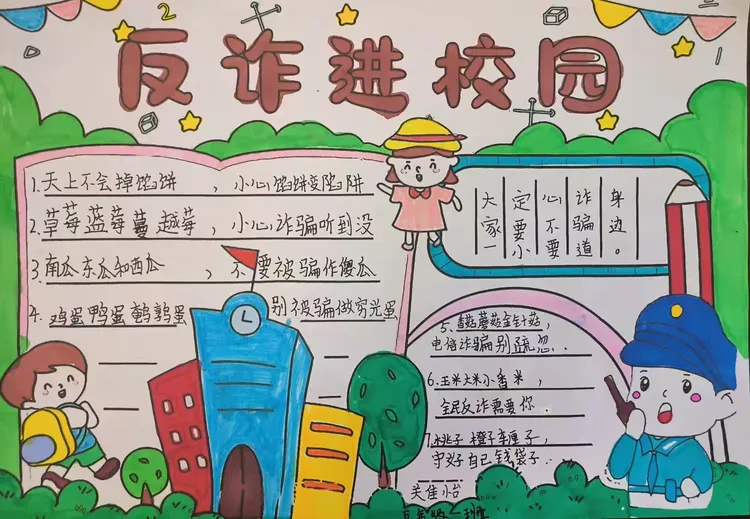 反诈进校园
1.天上不会掉馅饼，小心馅饼变陷阱
2.草莓蓝莓蔓越莓，小心诈骗听到没
3.南瓜东瓜和西瓜，不要被骗作傻瓜
4.鸡蛋鸭蛋鹌鹑蛋 别被骗做穷光蛋
大家一
定要小
心不要
诈骗道
身边。
5、香菇蘑菇金针菇，
电信诈骗别疏忽.
6、玉米大米小香米，
全民反诈需要你.
7.桃子橙子车厘子，
守好自己钱袋子.
关佳怡
2班